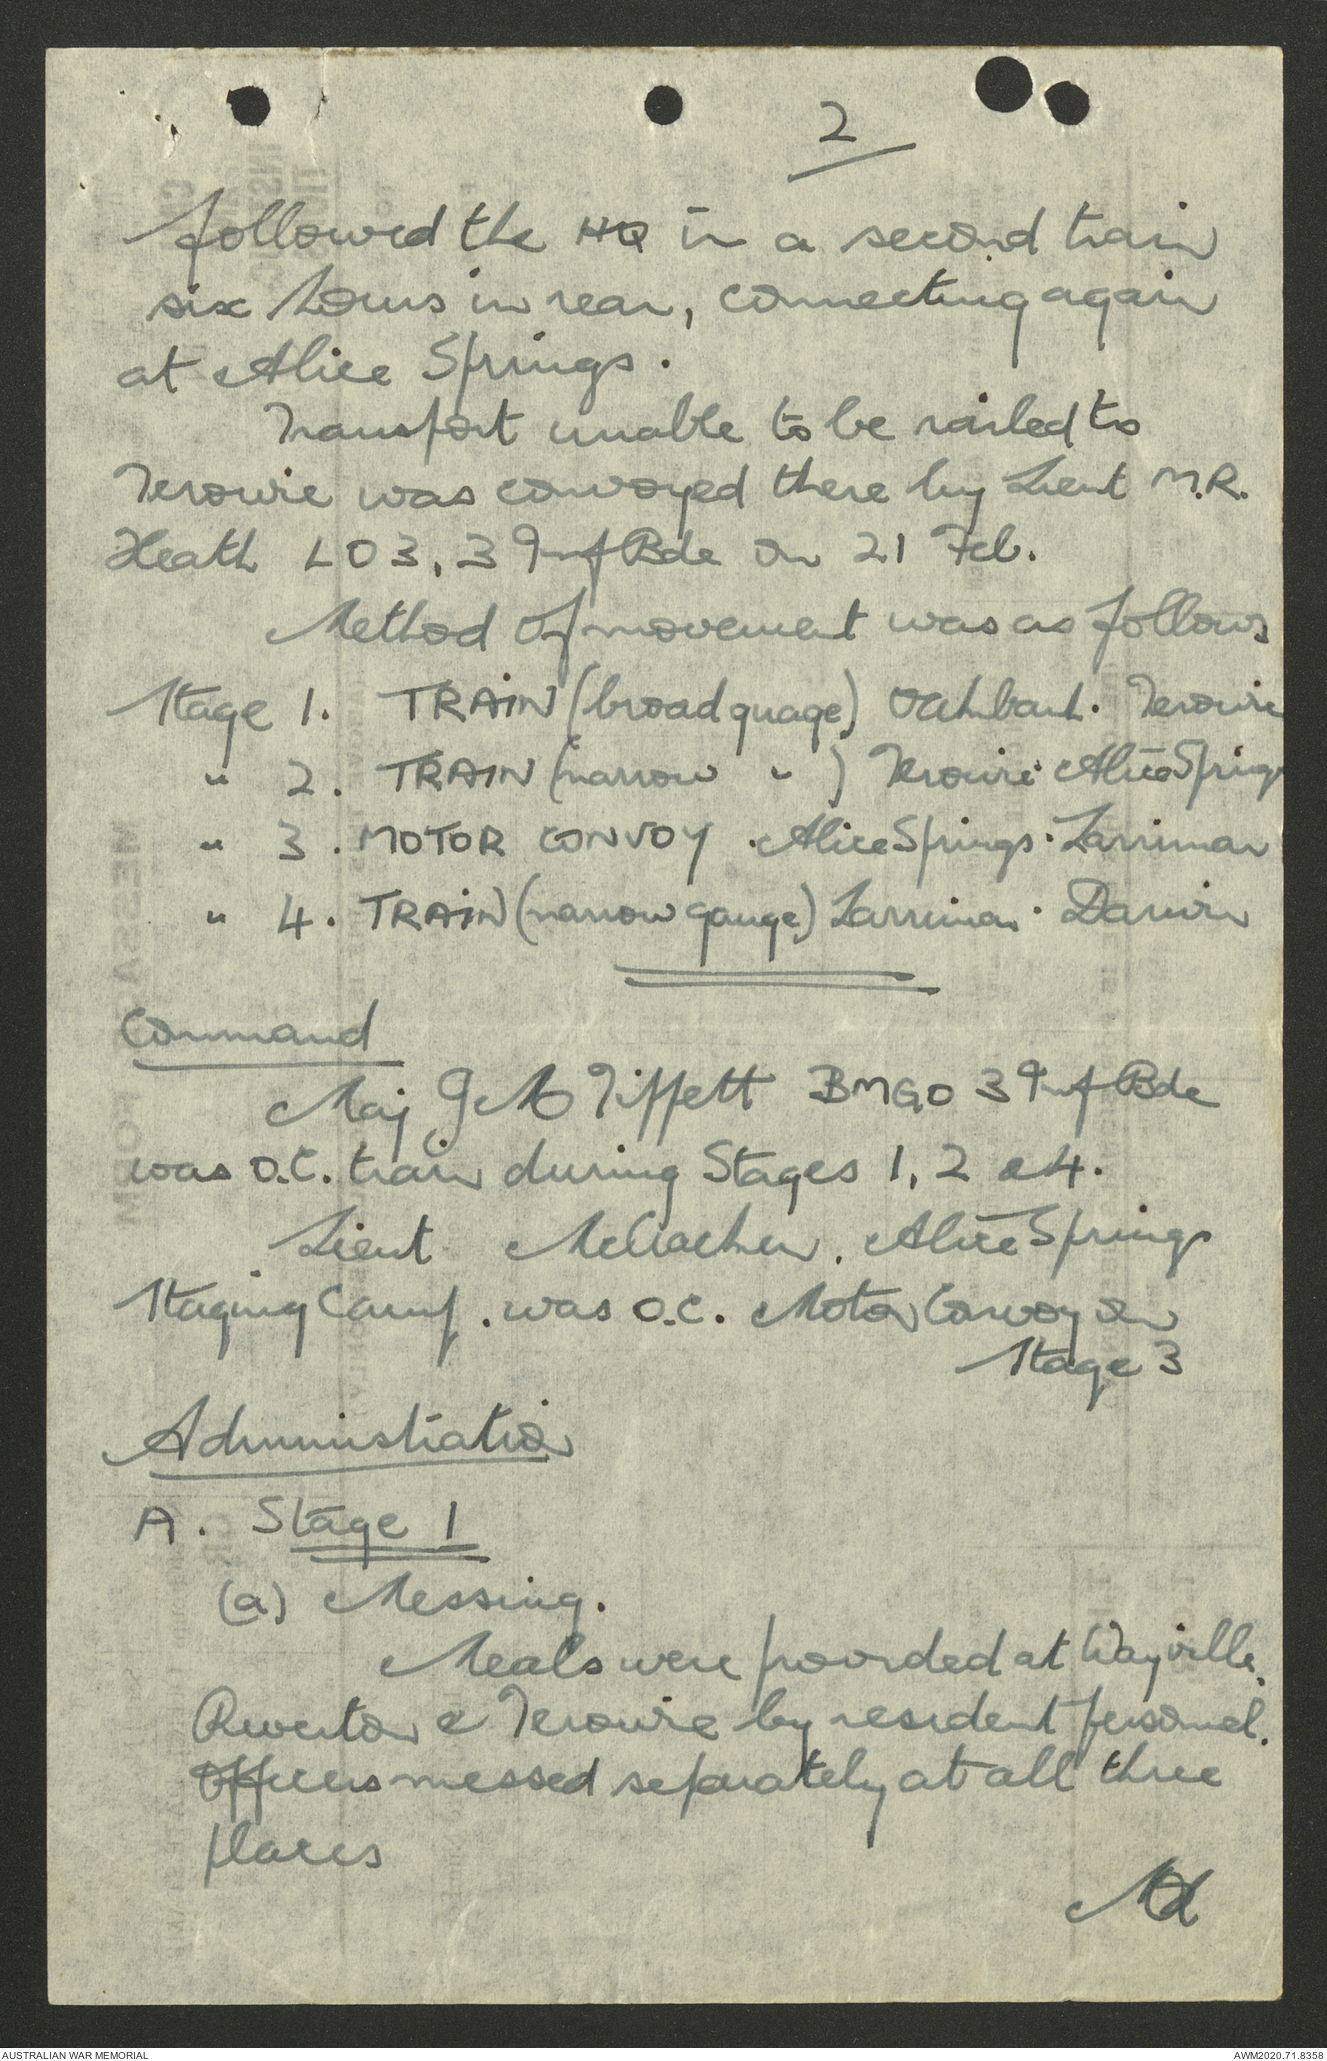 2
followed the HQ in a second train
six hours in rear, connecting again
at Alice Springs.
Transport unable to be railed to
Terowie was convoyed there by Lieut M.R.
Heath LO3, 3 Inf Bde on 21 Feb.
Method of movement was as follows
Stage 1. TRAIN (broad guage) Oakbank. Terowie
" 2. TRAIN (narrow " ) Terowie Alice Springs
" 3. MOTOR CONVOY. Alice Springs. Larrimar
" 4. TRAIN (narrow gauge) Larrimar. Darwin
Command
Maj G M Tippett BMGO 3 Inf Bde
was O.C. train during Stages 1, 2 & 4.
Lieut McEachern, Alice Springs
Staging Camp. was O.C. Motor Convoy on
Stage 3
Administration
A. Stage 1
(a) Messing.
Meals were provided at Wayville,
Riverton & Terowie by resident personnel.
Officers messed separately at all three
places
AUSTRALIAN WAR MEMORIAL
AWM2020.71.8358